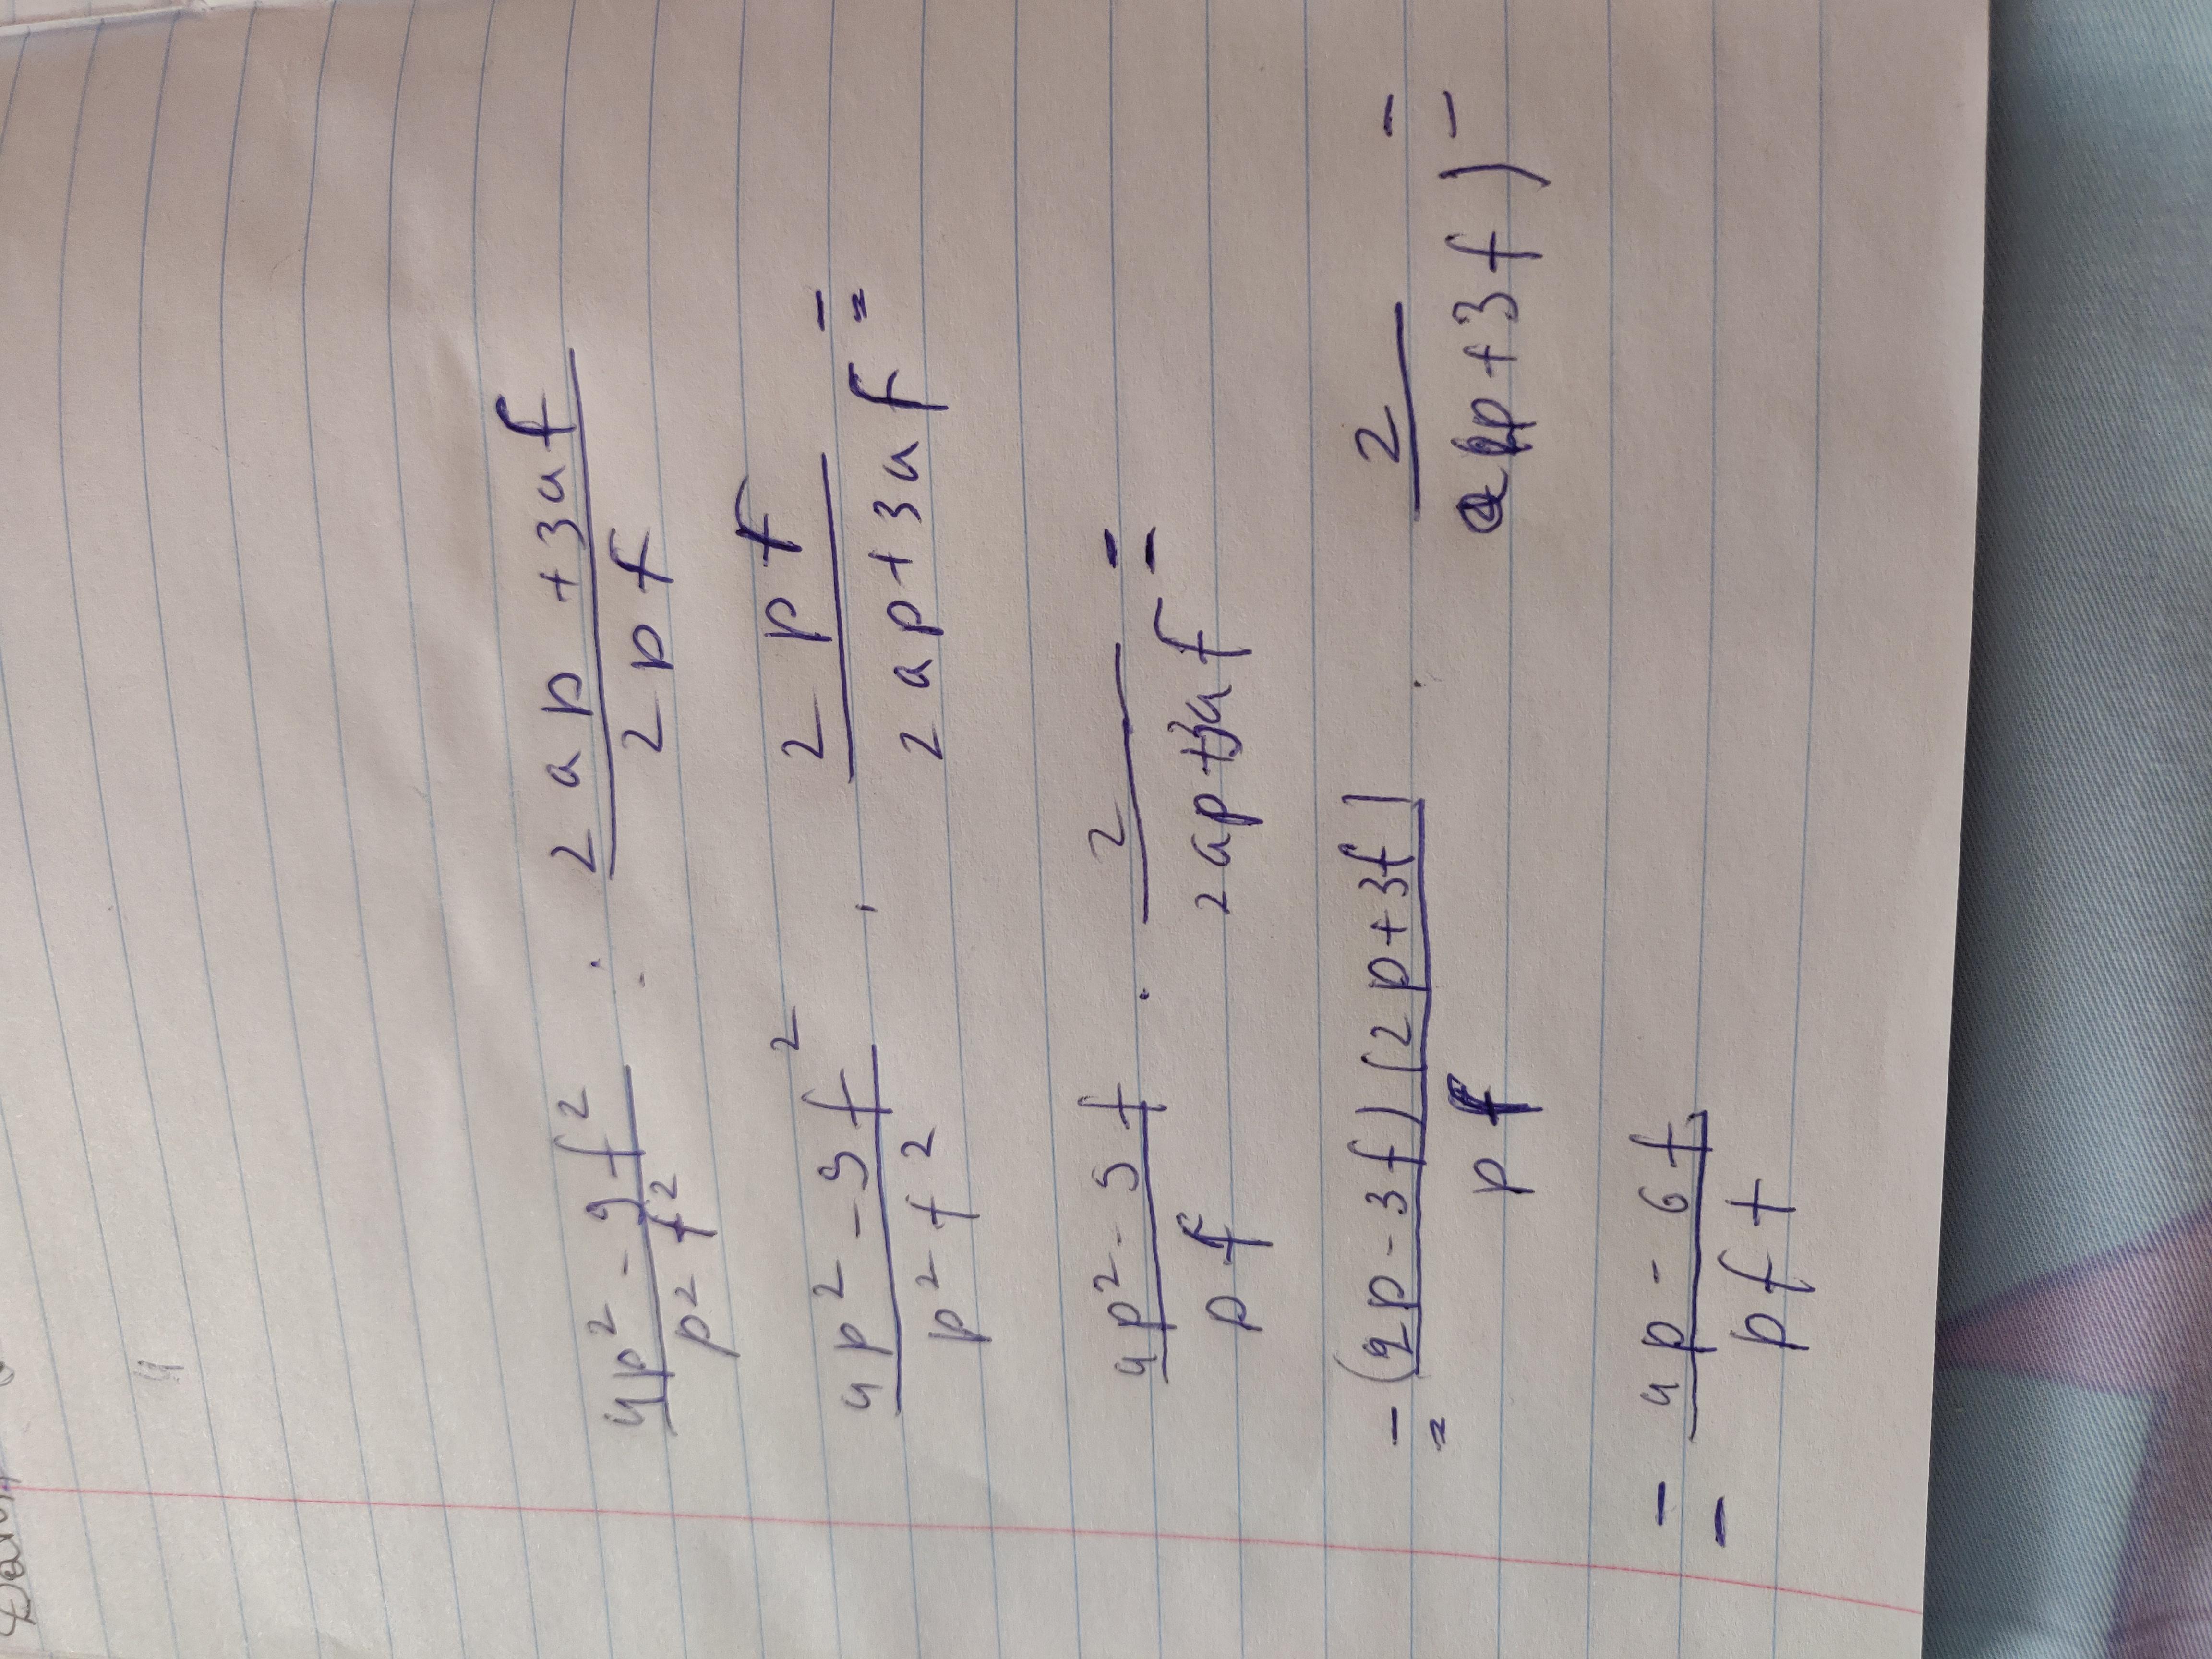 4
4p² - 9f² / p² f² : 2ap + 3af / 2pf
4p² - 9f² / p² f² · 2pf / 2ap + 3af =
4p² - 9f / pf · 2 / 2ap + 3af =
= (2p - 3f) (2p + 3f) / pf · 2 / a(2p + 3f) =
= 4p - 6f / pf +